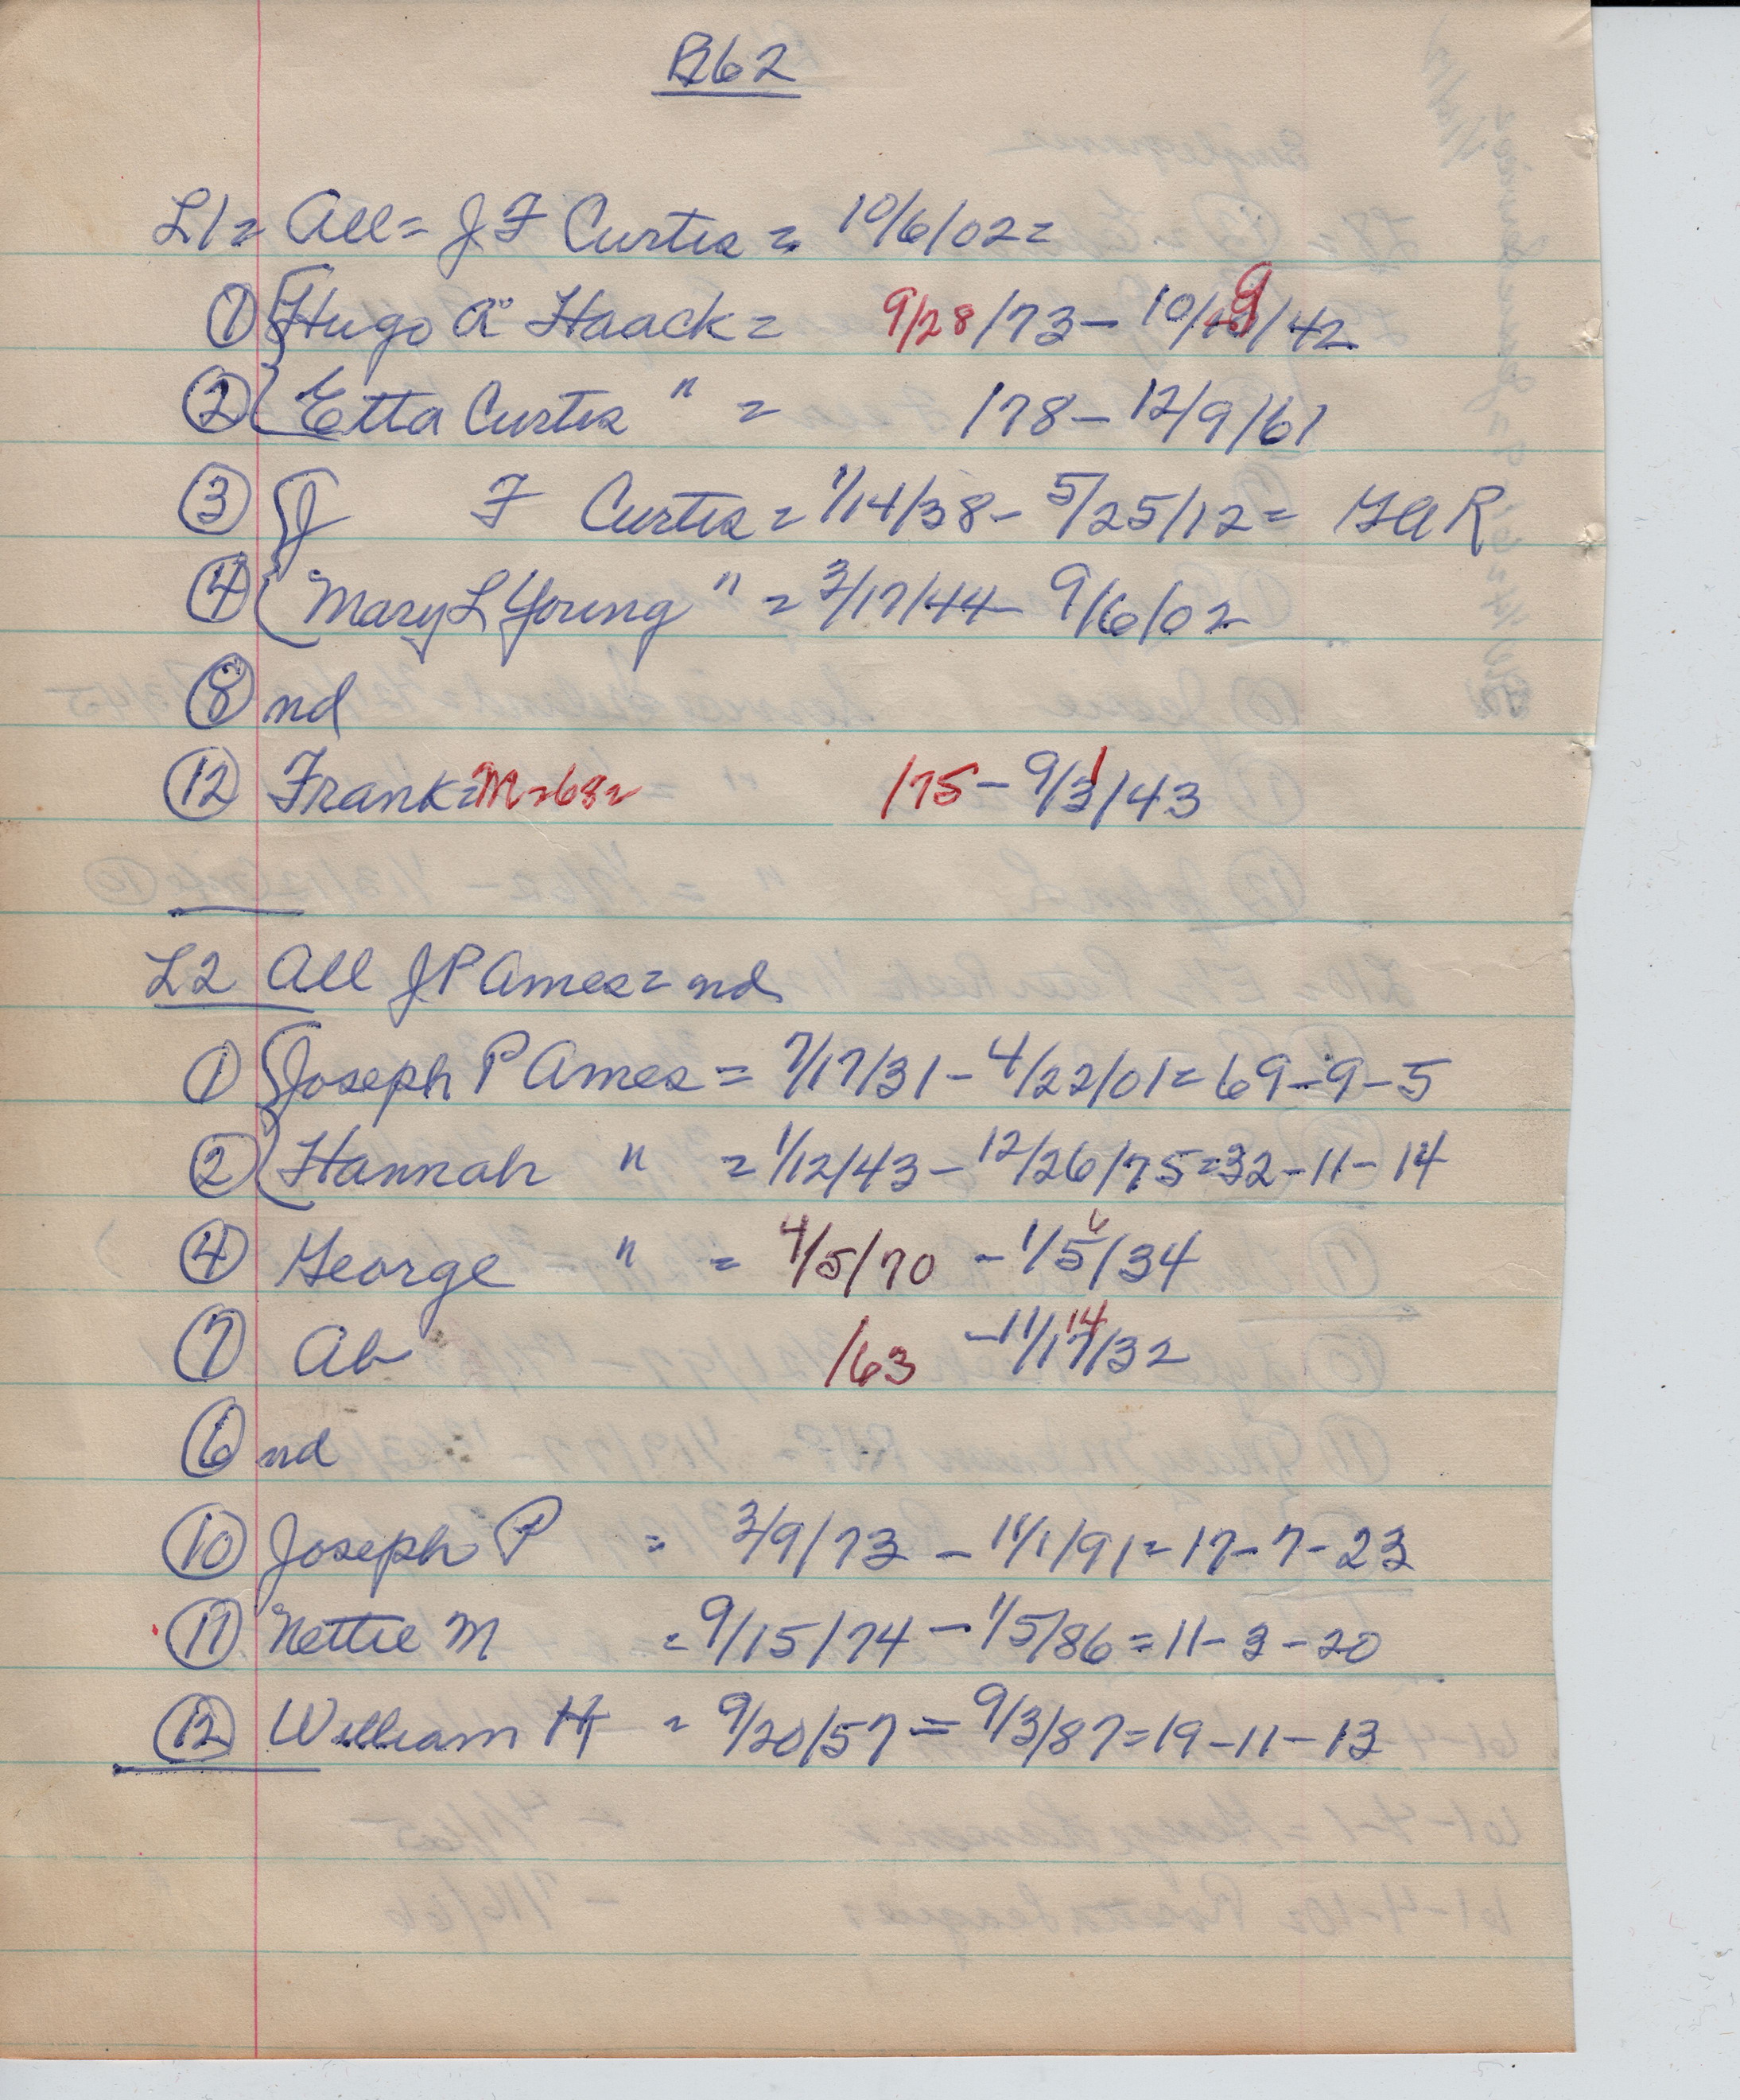 B62
L1= All= J F Curtis = 10/6/02=
① Hugo A Haack = 9/28/73 - 10/9/42
② Etta Curtis " = /78 - 12/9/61
③ J F Curtis = 1/14/38 - 5/25/12 = GAR
④ Mary L Young " = 3/17/44 - 9/6/02
⑧ nd
⑫ Frank = M=68= /75 - 9/1/43
L2 All J P Ames = nd
① Joseph P Ames = 7/17/31 - 4/22/01 = 69-9-5
② Hannah " = 1/12/43 - 12/26/75 = 32-11-14
④ George " = 4/5/70 - 1/5/34
⑦ Ab /63 - 11/17/32 14
⑥ nd
⑩ Joseph P = 3/9/73 - 11/1/91 = 17-7-23
⑪ Nettie M = 9/15/74 - 1/5/86 = 11-3-20
⑫ William H = 9/20/57 = 9/3/87 = 19-11-13